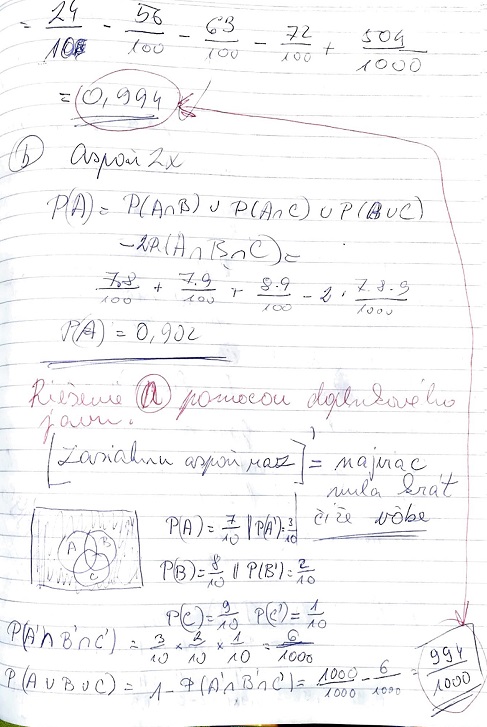 = 24/10 - 56/100 - 63/100 - 72/100 + 504/1000
= 0,994
b) Aspoň 2x
P(A) = P(A∩B) ∪ P(A∩C) ∪ P(B∪C)
-2P(A∩B∩C) =
7.8/100 + 7.9/100 + 8.9/100 - 2 . 7.8.9/1000
P(A) = 0,902
Riešenie a pomocou doplnkového
javu.
[Zasiahnu aspoň raz]' = najviac
nula krát
čiže vôbec
A B
C
P(A) = 7/10 || P(A') = 3/10
P(B) = 8/10 || P(B') = 2/10
P(C) = 9/10 P(C') = 1/10
P(A'∩B'∩C') = 3/10 × 2/10 × 1/10 = 6/1000
P(A∪B∪C) = 1 - P(A'∩B'∩C') = 1000/1000 - 6/1000 = 994/1000